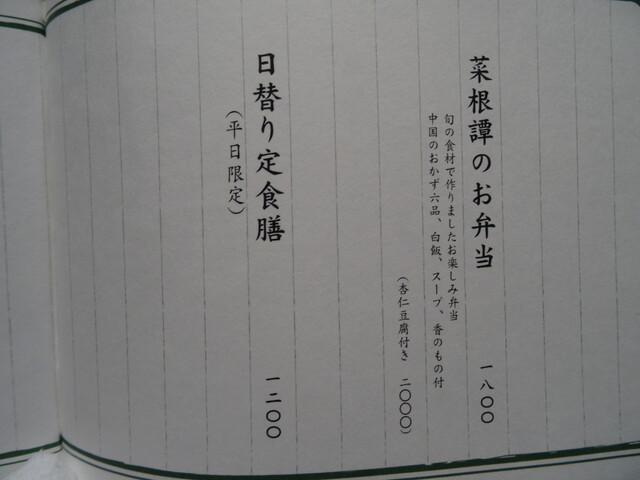 菜根譚のお弁当 一八〇〇
旬の食材で作りましたお楽しみ弁当
中国のおかず六品、白飯、スープ、香のもの付
（杏仁豆腐付き 二〇〇〇）
日替り定食膳 一二〇〇
（平日限定）